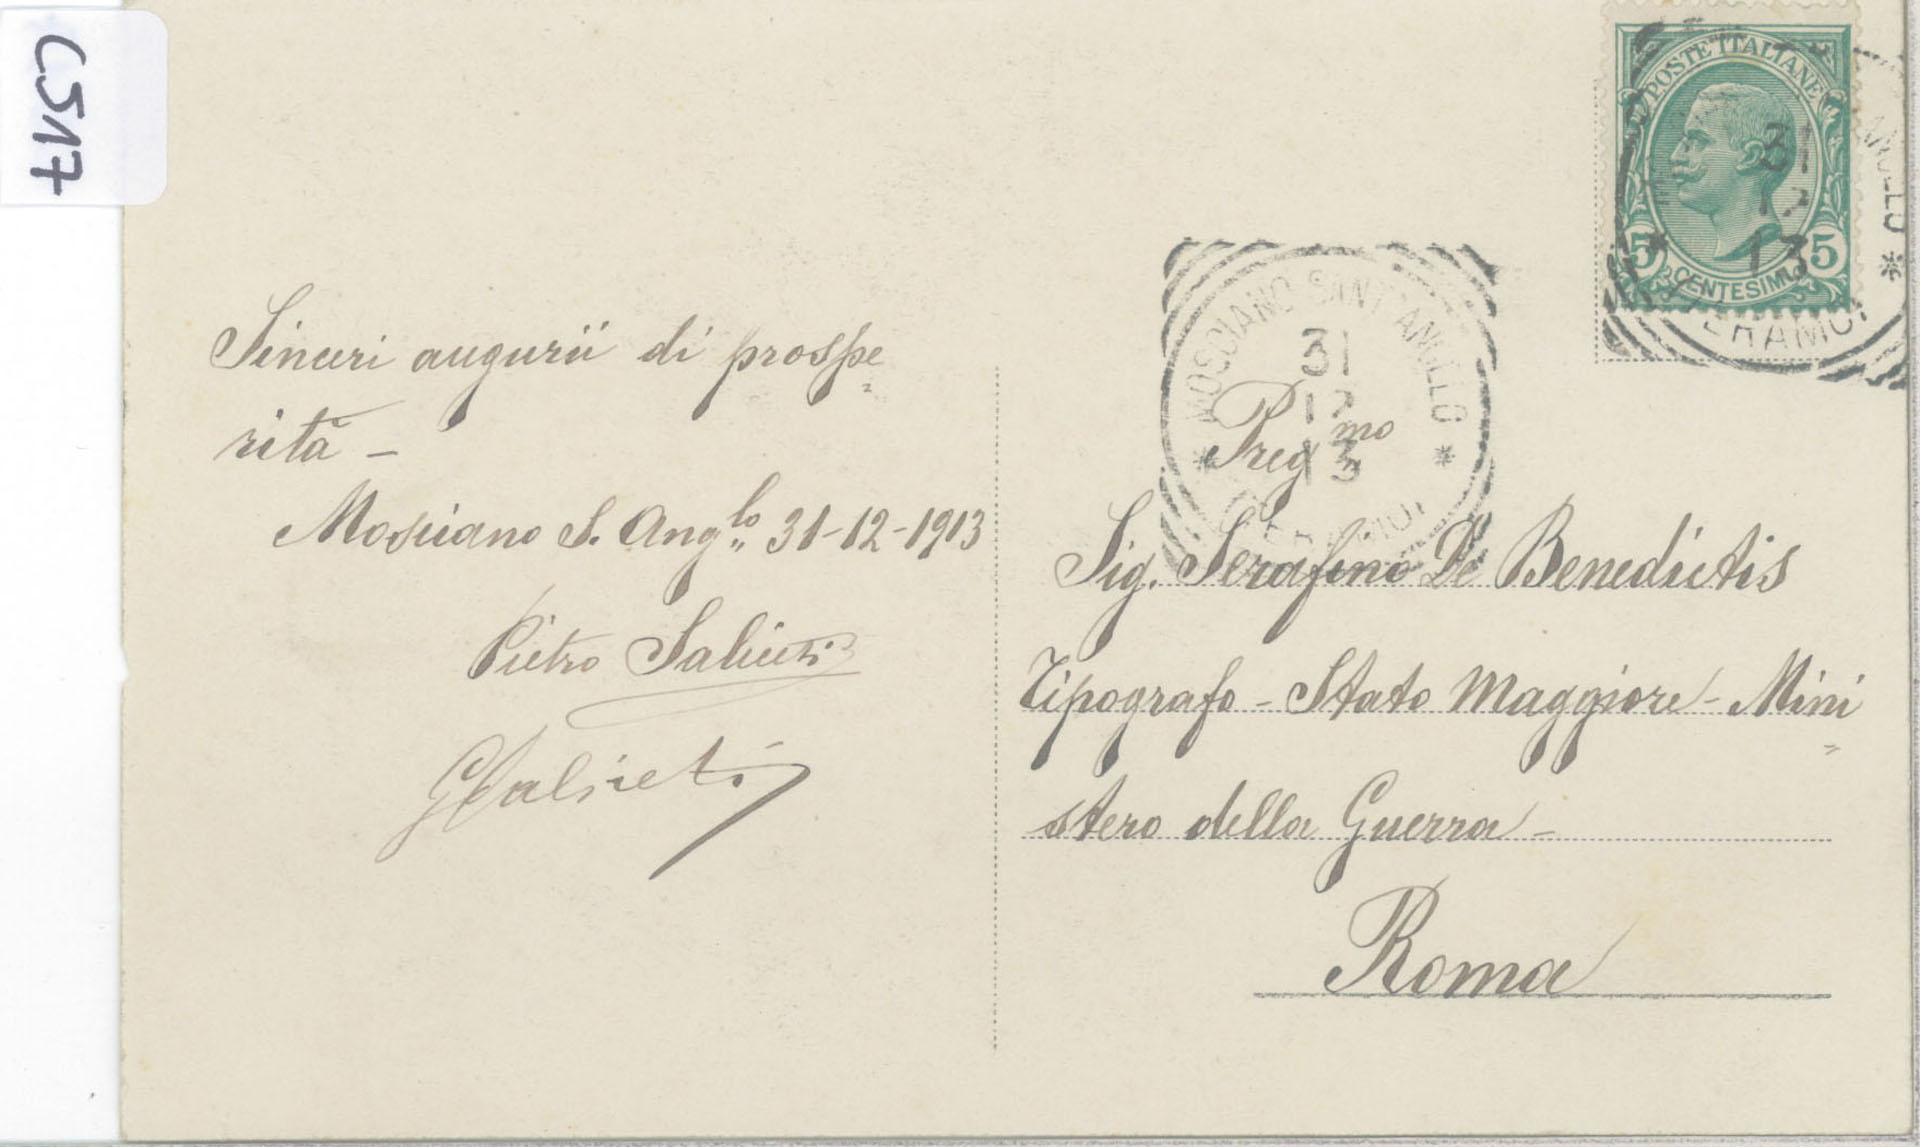 C517
POSTE ITALIANE
31
12
13
5 CENTESIMI 5
ANGELLO *
(TERAMO)
MOSCIANO SANT'ANGELLO
31
12
13
* (TERAMO) *
Sinceri augurii di prospe=
rità –
Mosciano S. Ang.lo 31-12-1913
Pietro Salvieti
GSalvieti
Preg.mo
Sig. Serafino De Benedictis
Tipografo – Stato Maggiore – Mini=
stero della Guerra –
Roma